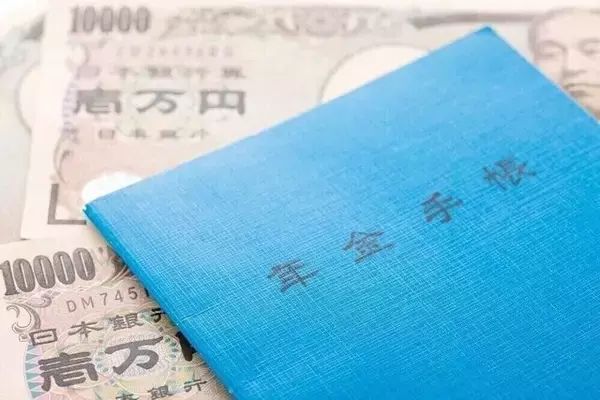 10000
日本銀行券
壱万円
日本銀行
年金手帳
10000
DM745
日本銀行
壱万円
日本銀行